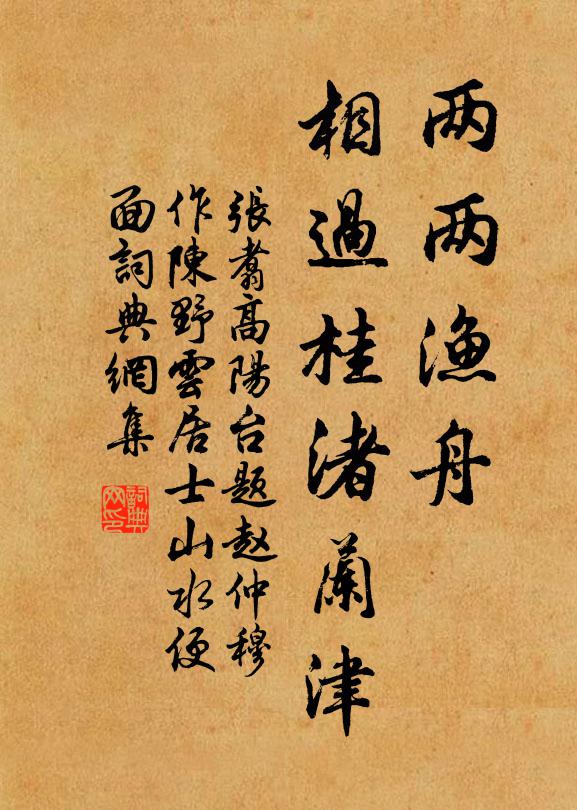 两两渔舟
相過桂渚蘭津
張翥高陽台题赵仲穆
作陳野雲居士山水便
面詞典網集
詞典网印